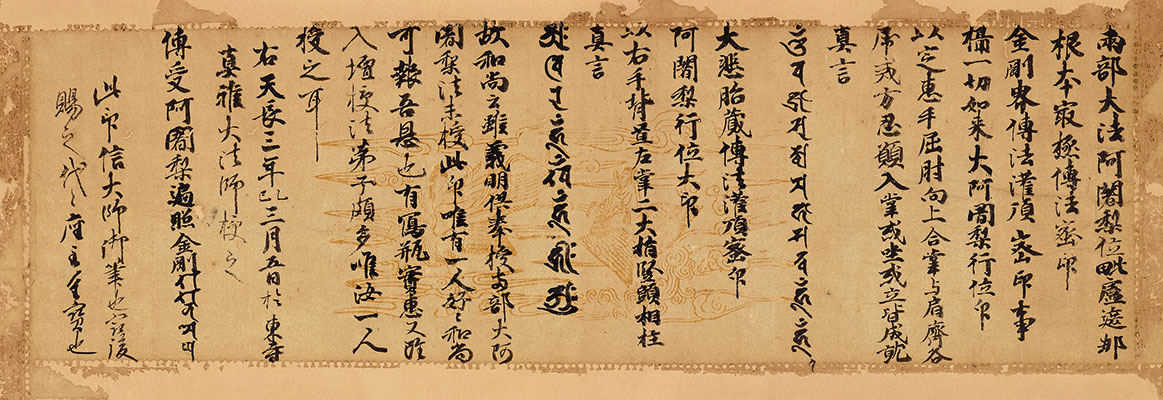 兩部大法阿闍梨位毗盧遮那
根本㝡極傳法密印
金剛界傳法灌頂密印事
攝一切如来大阿闍梨行位印
以定惠手屈肘向上合掌与肩齊各
屈戒方忍願入掌或坐或立皆成就
真言
大悲胎蔵傳法灌頂密印
阿闍梨行位大印
以右手背置左掌二大指竪頭相柱
真言
故和尚云雖義明供奉授兩部大阿
闍梨法未授此印唯有一人好々和尚
可報吾恩也有寫瓶實惠又雖
入壇授法弟子頗多唯汝一人
授之耳
右天長三年三月五日於東寺
真雅大法師授之
傳受阿闍梨遍照金剛
此印信大師御筆也
賜之代々座主重寶也